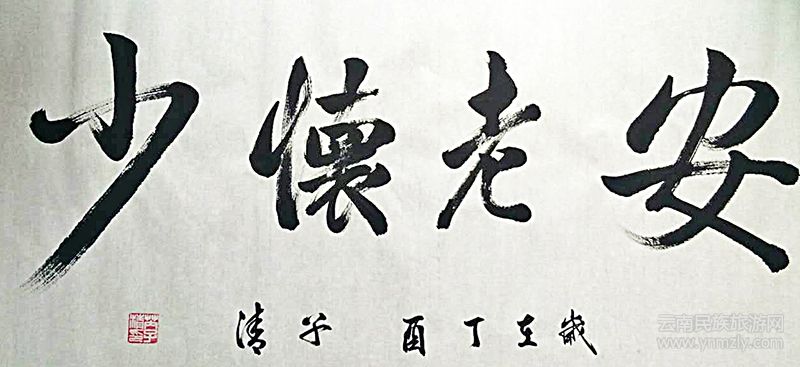 安老懷少
歲在丁酉 清
云南民族旅游网
www.ynmzly.com